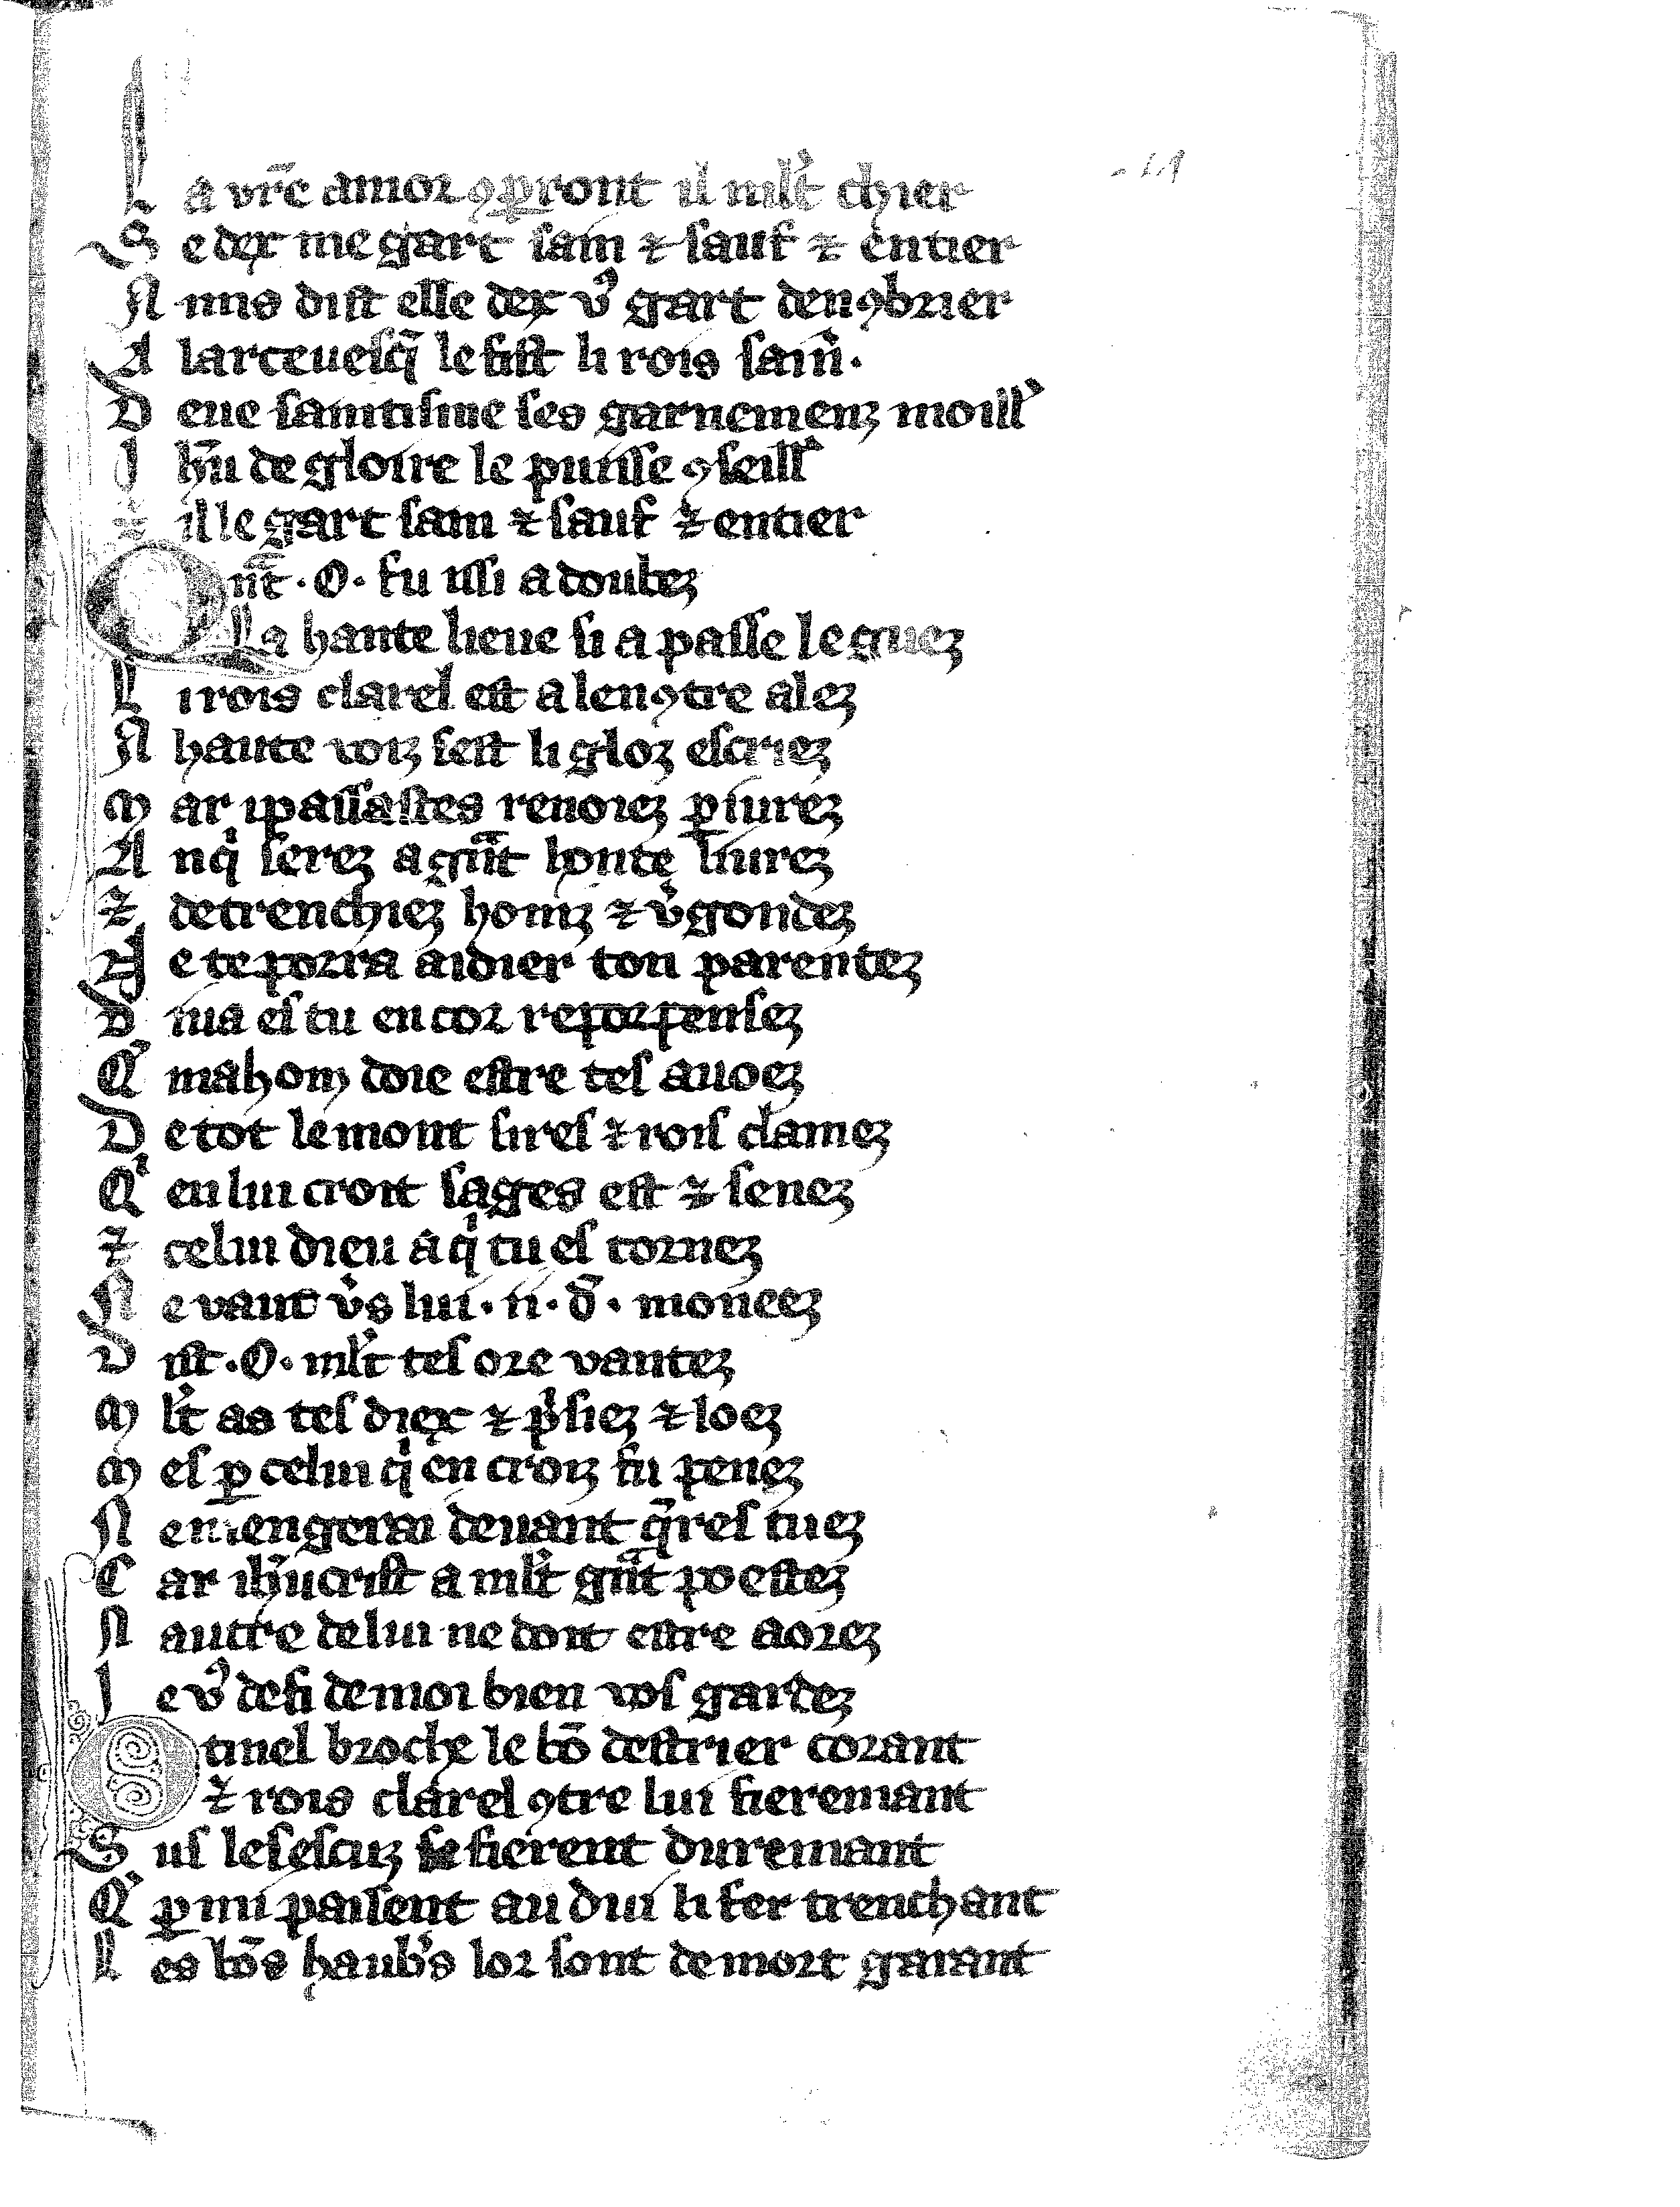 L a vr̄e amor ꝯꝑront il ml̛t chier
S e dex me gart sain ⁊ sauf ⁊ entier
A nuis dist elle dex vꝰ gart denꝯbrier
A larceuesq̄ le fist li rois sain̛.
D eue saintisme ses garnemenz moill̛
I hū de gloire le puisse ꝯseill̛
⁊ il le gart sain ⁊ sauf ⁊ entier
Q n̄t . O . fu issi adoubez
La hante lieue si a passe le guez
L i rois clarel est a lenꝯtre alez
A haute voiz sest li gloz escriez
M ar i passastes renoiez ꝑiurez
A nqͥ serez a gn̄t honte liurez
⁊ detrenchiez honiz ⁊ v̛gondez
N e te porra aidier ton parentez
D iua es tu encor reporpensez
Q̛ mahom doie estre tes auoez
D e tot le mont sires ⁊ rois clamez
Qͥ en lui croit sages est ⁊ senez
⁊ celui dieu a qͥ tu es tornez
N e vaut v̛s lui . ii . d̄ . moneez
D ist . O . ml̛t tes ore vantez
M l̛t as tes diex ⁊ p̛siez ⁊ loez
M es ꝑ celui qͥ en croiz fu penez
N e mengerai deuant q̄ res tuez
C ar ihūcrist a ml̛t gn̄t poestez
N autre de lui ne doit estre aorez
I e vꝰ defi de moi bien vos gardez
O tinel broche le bō destrier corant
⁊ rois clarel ꝯtre lui fieremant
S us les escuz se fierent duremant
Q̛ ꝑmi paisent audui li fer trenchant
L es bōs haub̛s lor sont de mort garant